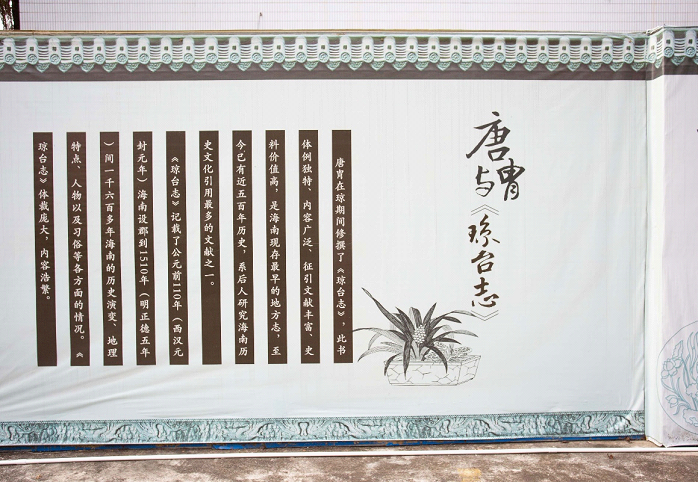 唐胄
与《琼台志》
唐胄在琼期间修撰了《琼台志》，此书
体例独特、内容广泛、征引文献丰富，史
料价值高，是海南现存最早的地方志，至
今已有近五百年历史，系后人研究海南历
史文化引用最多的文献之一。
《琼台志》记载了公元前110年（西汉元
封元年）海南设郡到1510年（明正德五年
）间一千六百多年海南的历史演变、地理
特点、人物以及习俗等各方面的情况。《
琼台志》体裁庞大，内容浩繁。